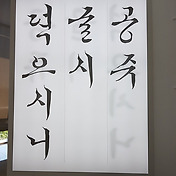 공죽
글시
덕으시니